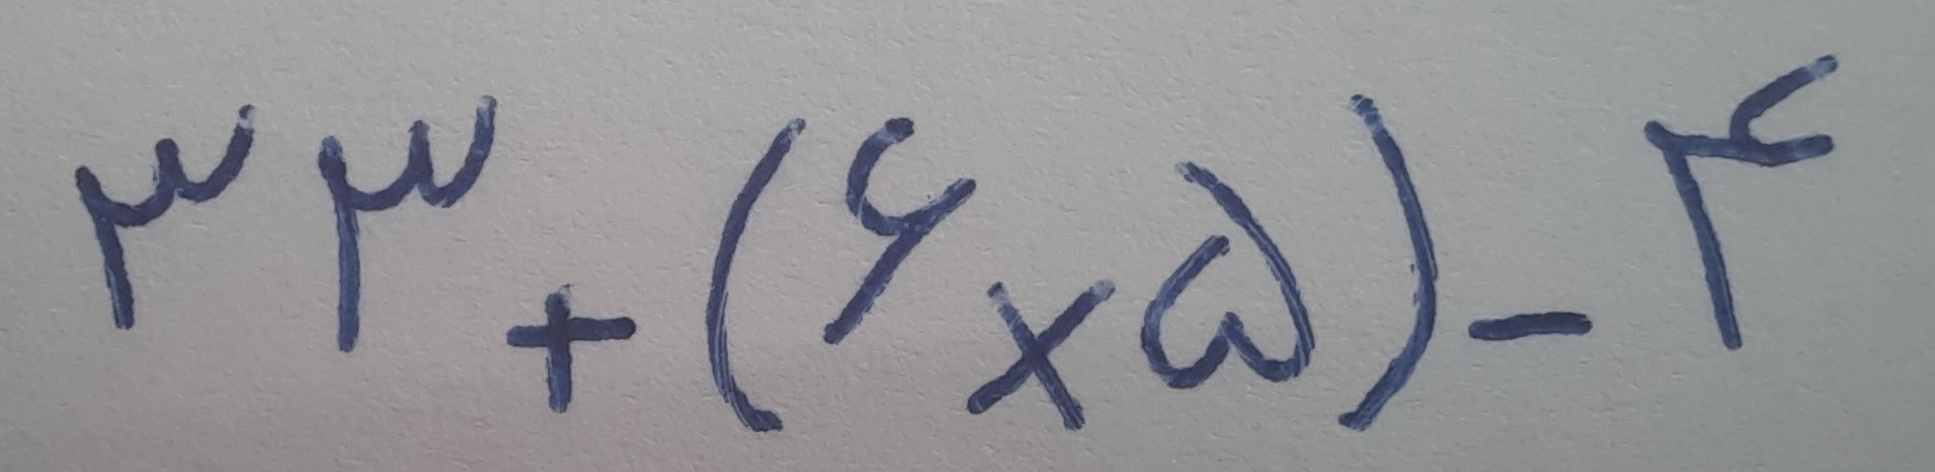 ۳۳+(۶×۵)-۴